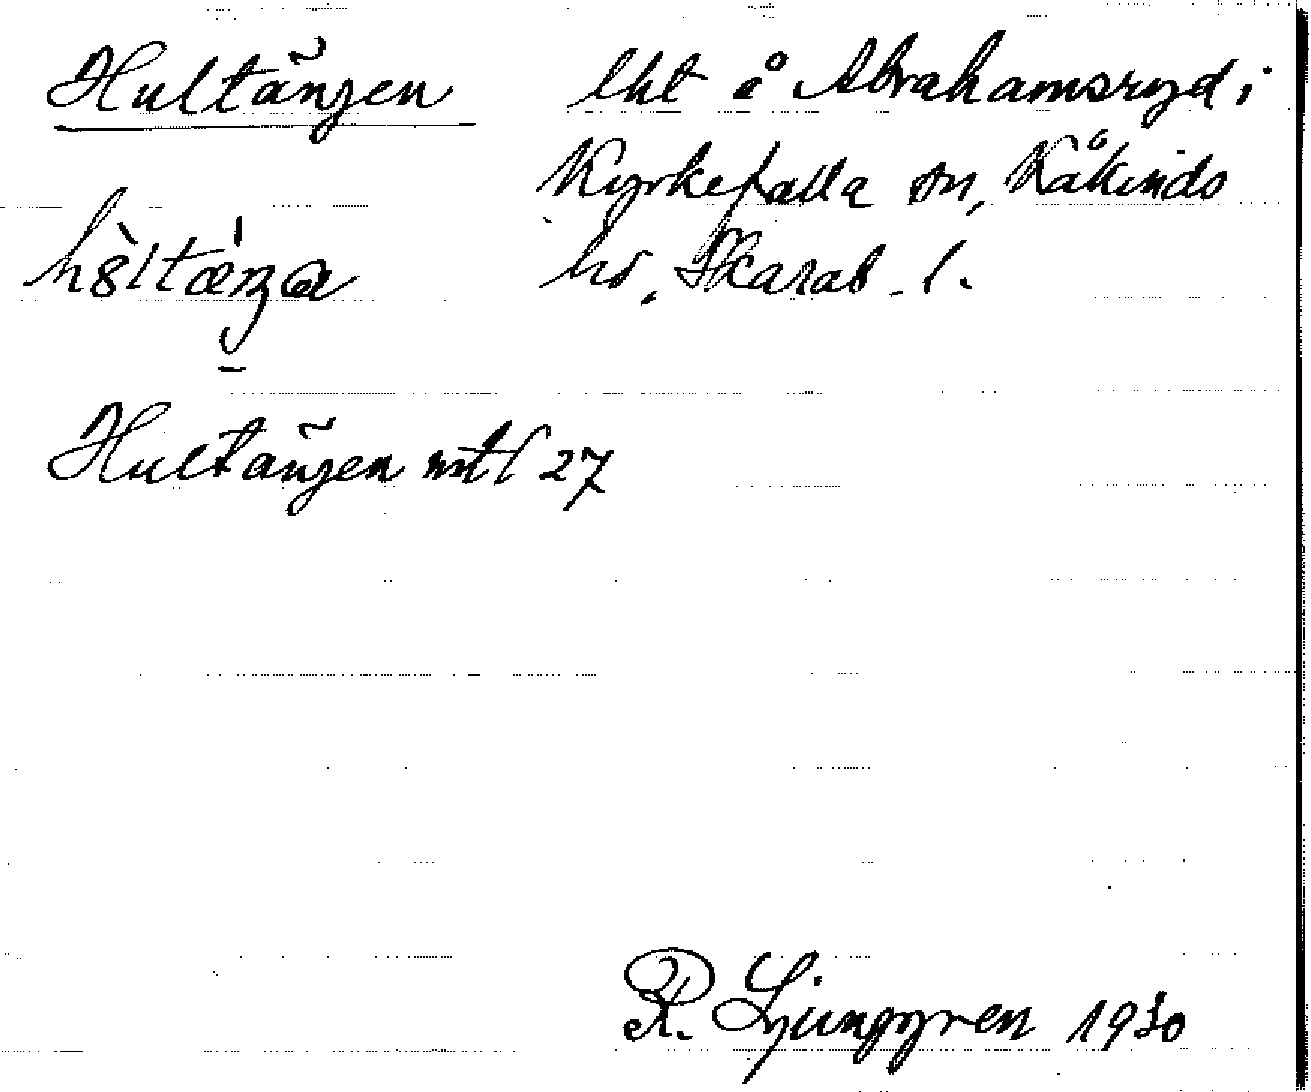 Hultängen lht å Abrahamsryd i
Kyrkefalla sn, Kåkinds
hd, Skarab. l.
Hultängen mtl 27
R. Ljunggren 1930